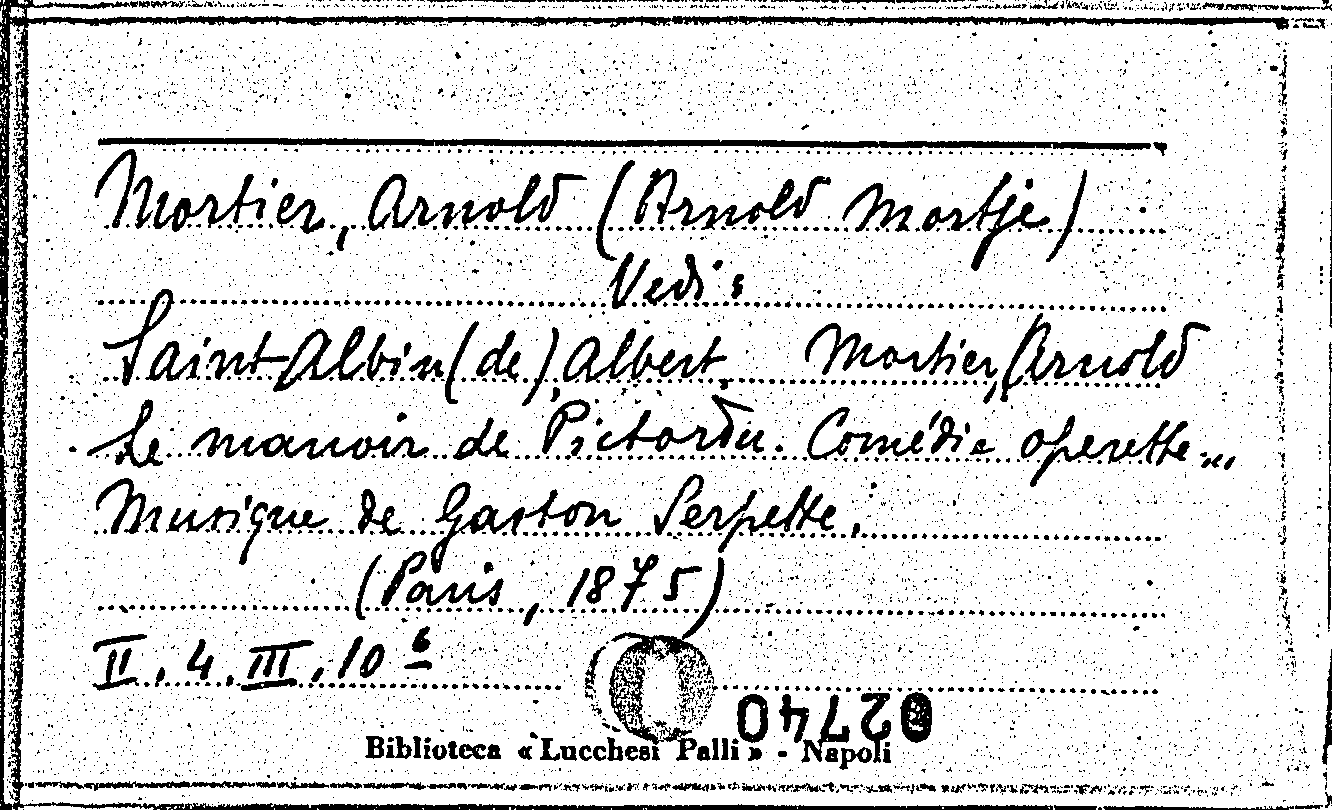 Mortier, Arnold (Arnold Mortje)
Vedi:
Saint-Albin (de), Albert. Mortier, Arnold
Le manoir de Pictordu. Comédie operette...
Musique de Gaston Serpette.
(Paris, 1875)
II. 4. III. 10 6
02740
Biblioteca « Lucchesi Palli » - Napoli